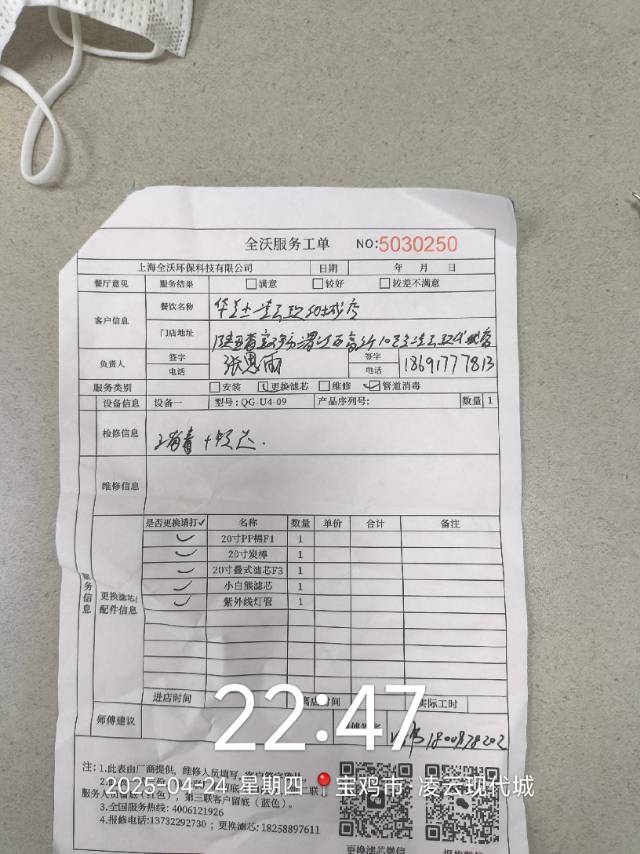 全沃服务工单 NO:5030250
上海全沃环保科技有限公司 日期 年 月 日
餐厅意见 服务结果 满意 较好 较差不满意
客户信息 餐饮名称
门店地址
负责人 签字 张思雨 签字
电话 电话 18691777813
服务类别 安装 更换滤芯 维修 管道消毒
设备信息 设备一 型号:QG-U4-09 产品序列号: 数量 1
检修信息 消毒 + 换芯.
维修信息
服务信息 更换滤芯/配件信息
是否更换请打✓ 名称 数量 单价 合计 备注
✓ 20寸PP棉F1 1
✓ 20寸炭棒 1
✓ 20寸叠式滤芯F3 1
✓ 小白熊滤芯 1
✓ 紫外线灯管 1
进店时间 时间 实际工时
师傅建议
22:47
注: 1.此表由厂商提供, 维修人员填写
2025-04-24 星期四 宝鸡市·凌云现代城
服务人员留底(红色), 第三联客户留底(蓝色)。
3.全国服务热线: 4006121926
4.报修电话:13732292730 ; 更换滤芯: 18258897611
更换滤芯微信